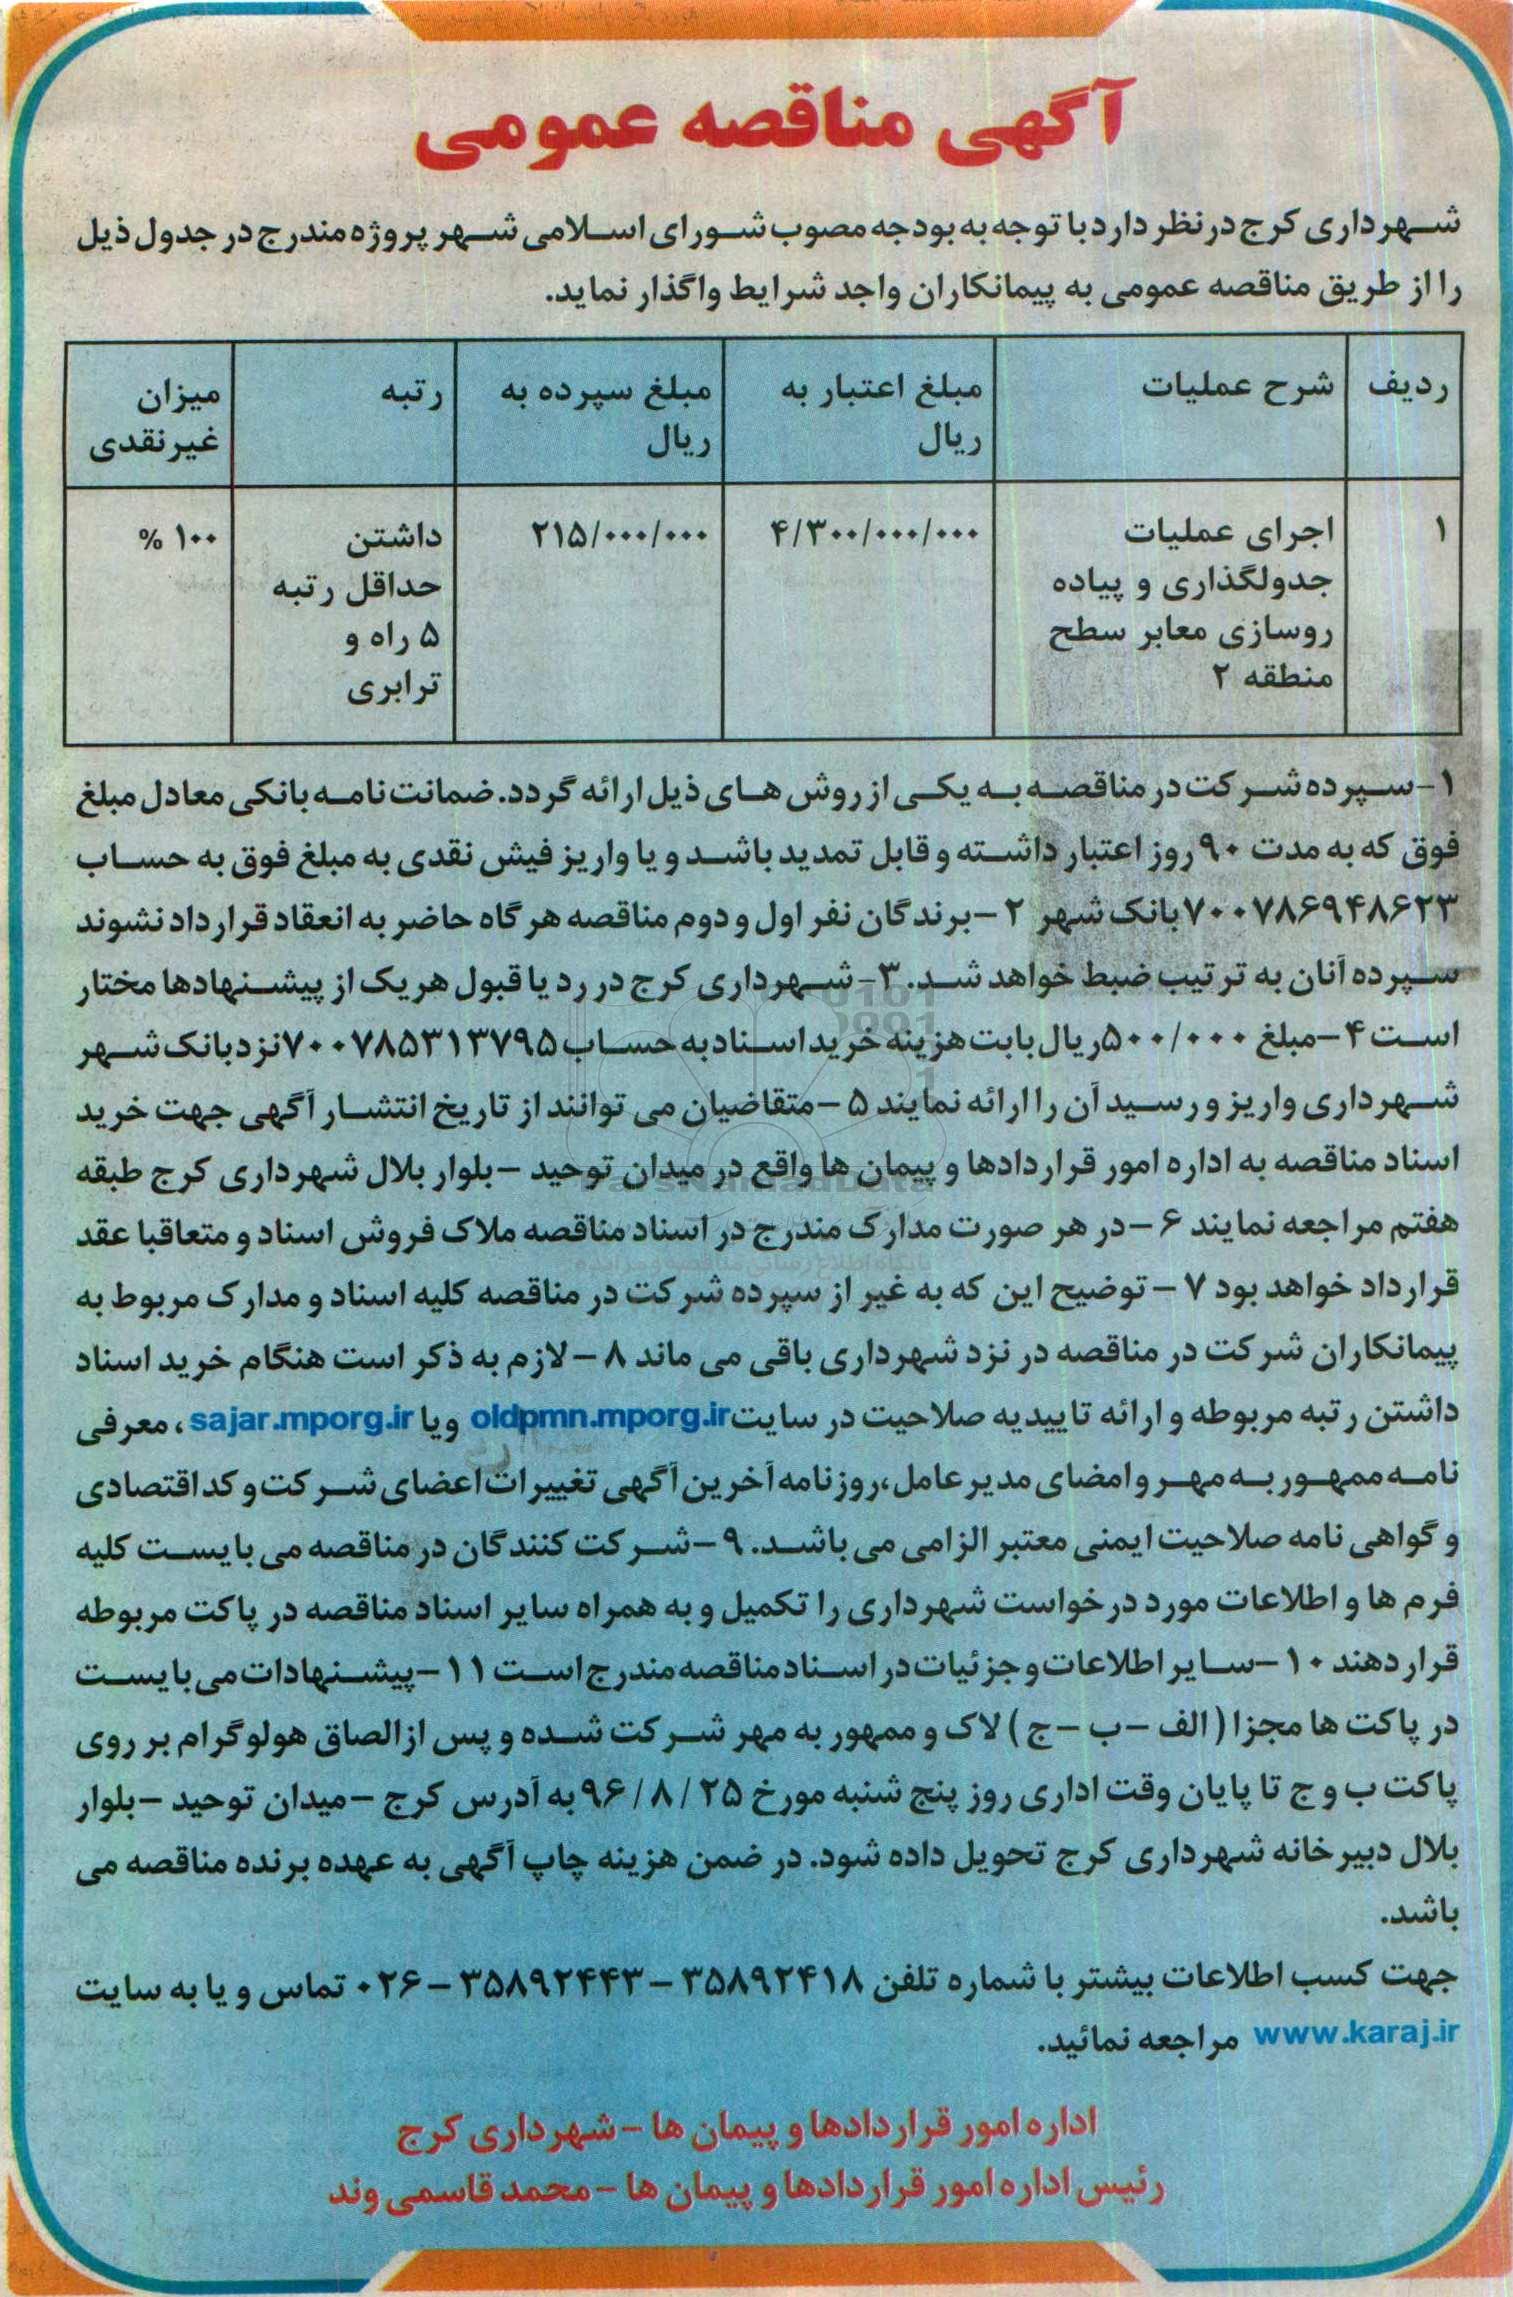 آگهی مناقصه عمومی
شهرداری کرج در نظر دارد با توجه به بودجه مصوب شورای اسلامی شهر پروژه مندرج در جدول ذیل
را از طریق مناقصه عمومی به پیمانکاران واجد شرایط واگذار نماید.
ردیف | شرح عملیات | مبلغ اعتبار به ریال | مبلغ سپرده به ریال | رتبه | میزان غیرنقدی
۱ | اجرای عملیات جدولگذاری و پیاده روسازی معابر سطح منطقه ۲ | ۴/۳۰۰/۰۰۰/۰۰۰ | ۲۱۵/۰۰۰/۰۰۰ | داشتن حداقل رتبه ۵ راه و ترابری | ۱۰۰ %
۱-سپرده شرکت در مناقصه به یکی از روش های ذیل ارائه گردد. ضمانت نامه بانکی معادل مبلغ
فوق که به مدت ۹۰ روز اعتبار داشته و قابل تمدید باشد و یا واریز فیش نقدی به مبلغ فوق به حساب
۷۰۰۷۸۶۹۴۸۶۲۳ بانک شهر ۲ -برندگان نفر اول و دوم مناقصه هرگاه حاضر به انعقاد قرارداد نشوند
سپرده آنان به ترتیب ضبط خواهد شد. ۳-شهرداری کرج در رد یا قبول هریک از پیشنهادها مختار
است ۴-مبلغ ۵۰۰/۰۰۰ریال بابت هزینه خرید اسناد به حساب ۷۰۰۷۸۵۳۱۳۷۹۵نزد بانک شهر
شهرداری واریز و رسید آن را ارائه نمایند ۵-متقاضیان می توانند از تاریخ انتشار آگهی جهت خرید
اسناد مناقصه به اداره امور قراردادها و پیمان ها واقع در میدان توحید -بلوار بلال شهرداری کرج طبقه
هفتم مراجعه نمایند ۶-در هر صورت مدارک مندرج در اسناد مناقصه ملاک فروش اسناد و متعاقبا عقد
قرارداد خواهد بود ۷ - توضیح این که به غیر از سپرده شرکت در مناقصه کلیه اسناد و مدارک مربوط به
پیمانکاران شرکت در مناقصه در نزد شهرداری باقی می ماند ۸-لازم به ذکر است هنگام خرید اسناد
داشتن رتبه مربوطه و ارائه تاییدیه صلاحیت در سایت oldpmn.mporg.ir ویا sajar.mporg.ir ، معرفی
نامه ممهور به مهر و امضای مدیرعامل،روزنامه آخرین آگهی تغییرات اعضای شرکت و کد اقتصادی
و گواهی نامه صلاحیت ایمنی معتبر الزامی می باشد. ۹-شرکت کنندگان در مناقصه می بایست کلیه
فرم ها و اطلاعات مورد درخواست شهرداری را تکمیل و به همراه سایر اسناد مناقصه در پاکت مربوطه
قرار دهند ۱۰-سایر اطلاعات و جزئیات در اسناد مناقصه مندرج است ۱۱-پیشنهادات می بایست
در پاکت ها مجزا ( الف -ب -ج ) لاک و ممهور به مهر شرکت شده و پس از الصاق هولوگرام بر روی
پاکت ب و ج تا پایان وقت اداری روز پنج شنبه مورخ ۹۶/۸/۲۵ به آدرس کرج -میدان توحید -بلوار
بلال دبیرخانه شهرداری کرج تحویل داده شود. در ضمن هزینه چاپ آگهی به عهده برنده مناقصه می
باشد.
جهت کسب اطلاعات بیشتر با شماره تلفن ۳۵۸۹۲۴۱۸ - ۳۵۸۹۲۴۴۳ - ۰۲۶ تماس و یا به سایت
www.karaj.ir مراجعه نمائید.
اداره امور قراردادها و پیمان ها - شهرداری کرج
رئیس اداره امور قراردادها و پیمان ها - محمد قاسمی وند
ParsNamadData
پایگاه اطلاع رسانی مناقصه و مزایده